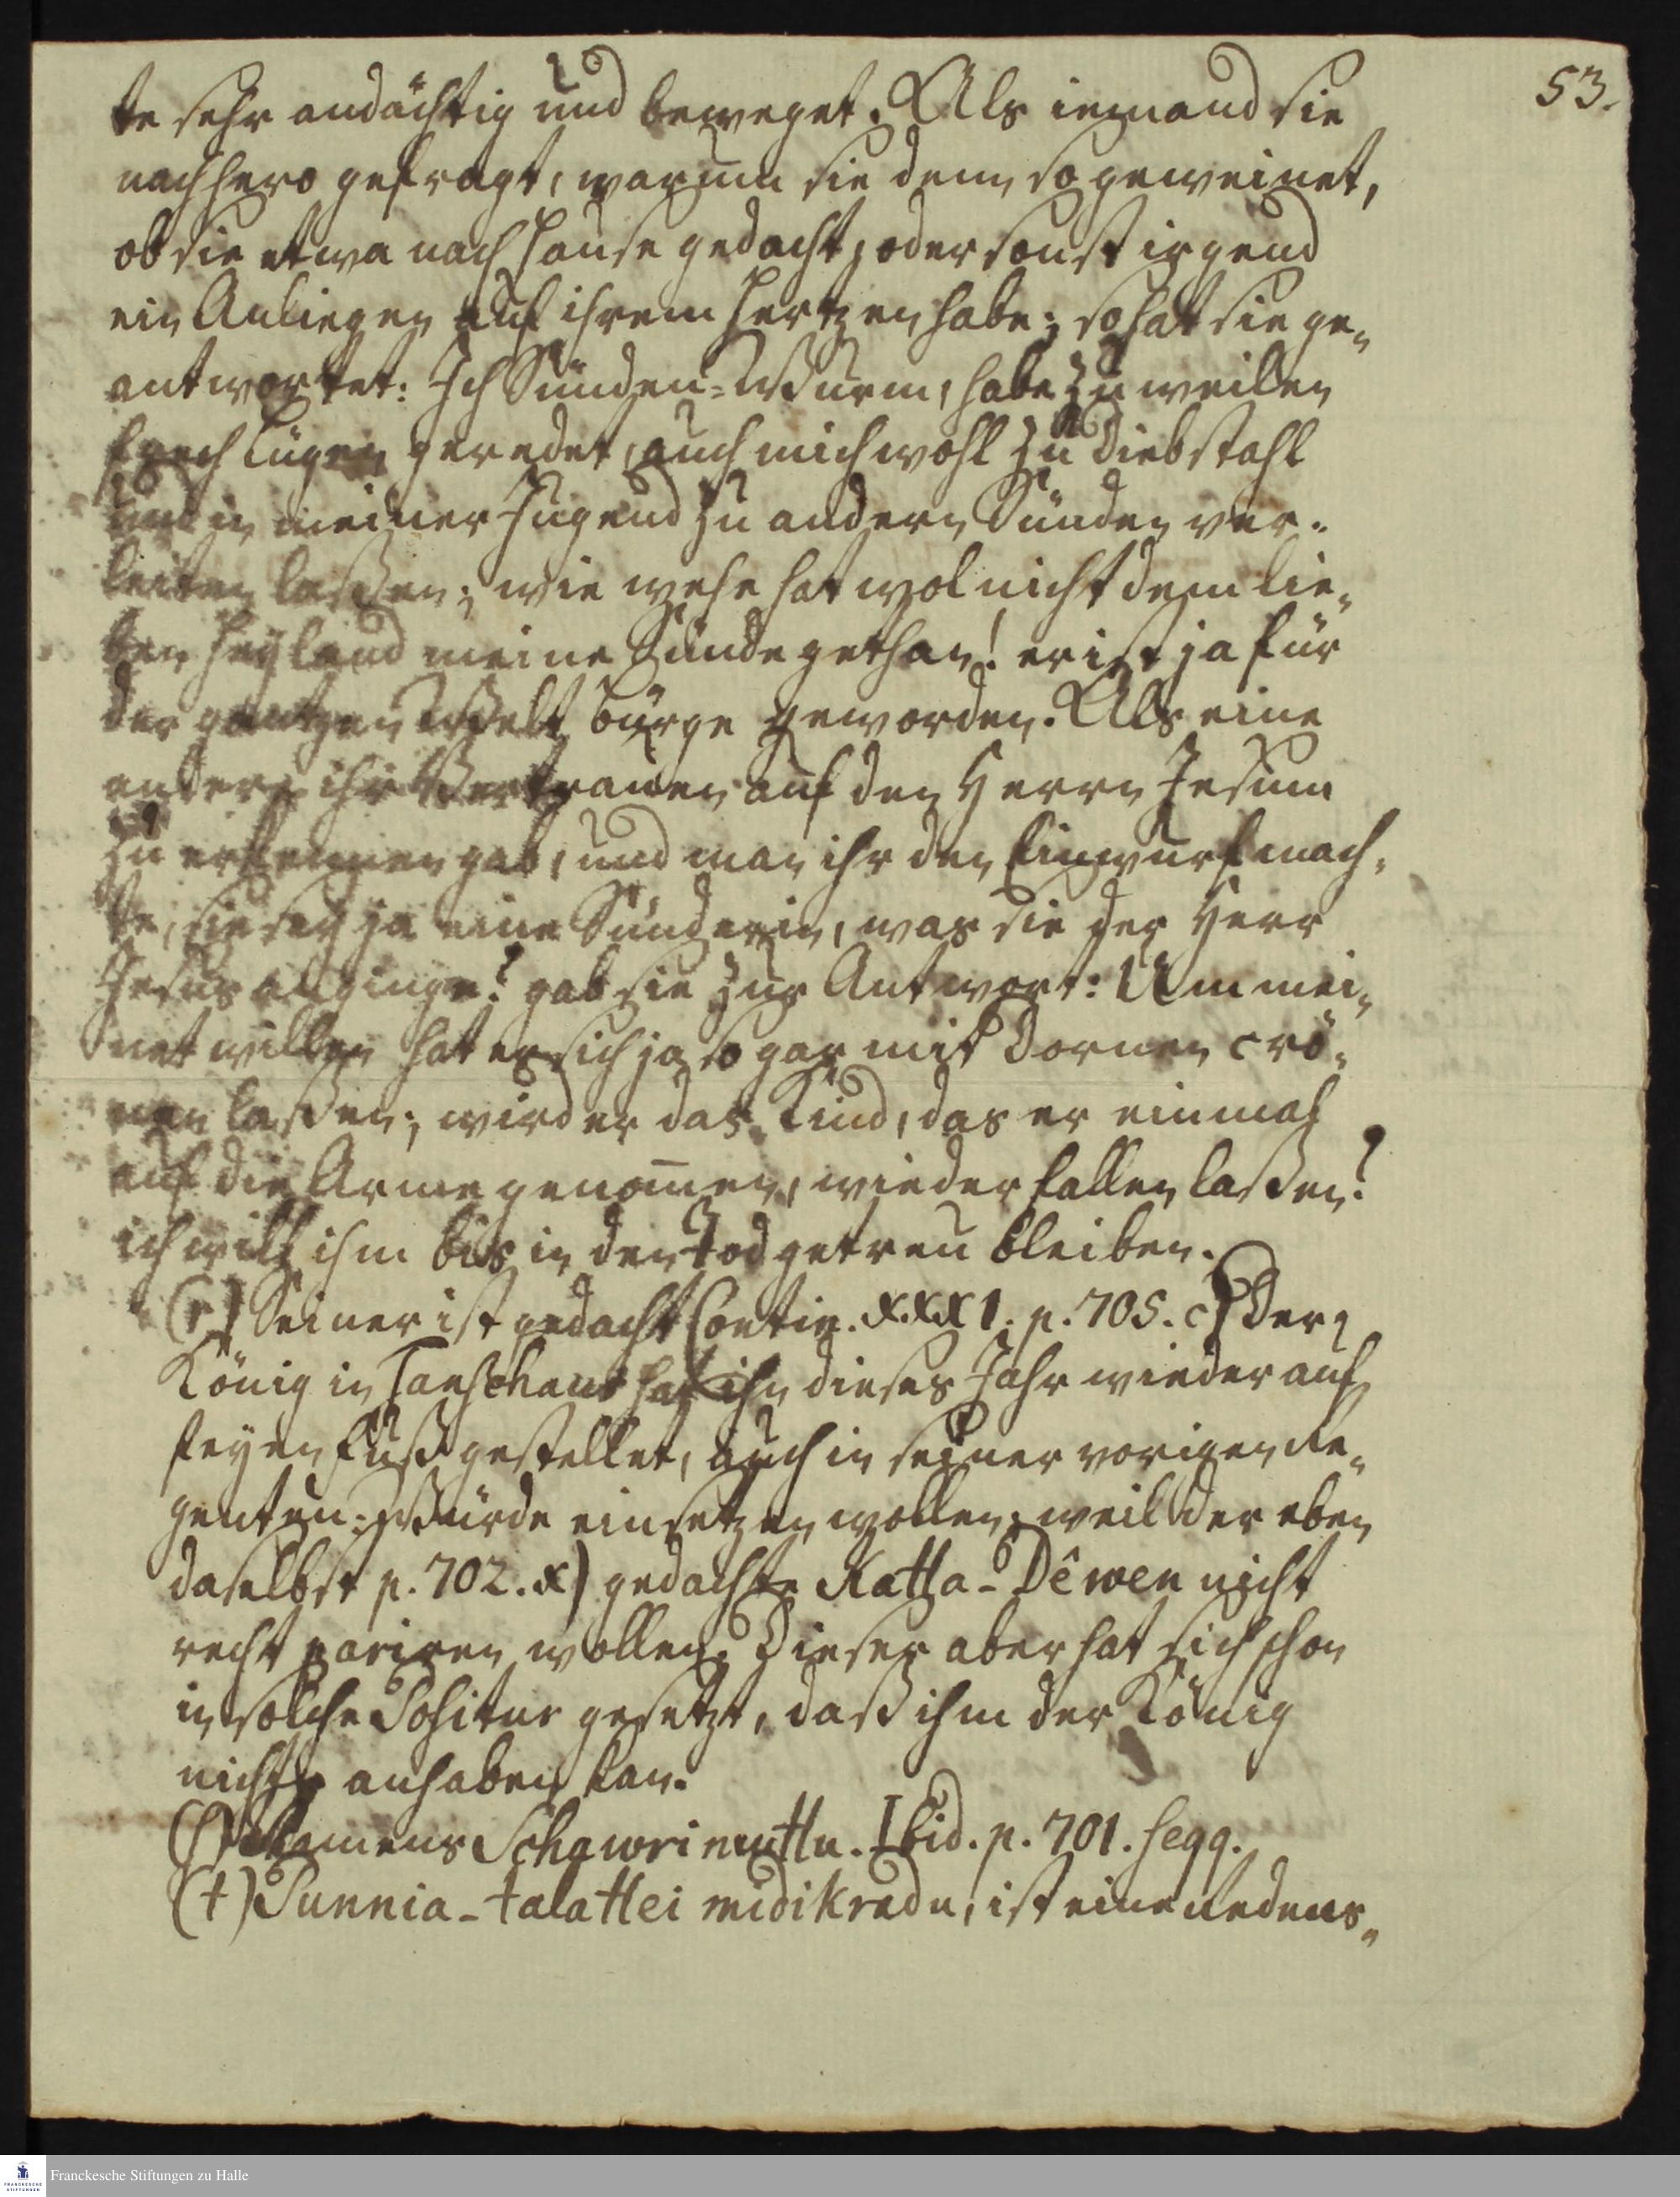 53.
te sehr andächtig und beweget. Als iemand sie
nachhero gefragt, warum sie denn so geweinet,
ob sie etwa nach Hause gedacht, oder sonst irgend
ein Anliegen auf ihrem Hertzen habe; so hat sie ge-
antwortet: Ich Sünden-Wurm, habe zuweilen
frech Lügen geredet, auch mich wohl zu Diebstahl
und in meiner Jugend zu andern Sünden ver-
leiten laßen; wie wehe hat wol nicht dem lie-
ben Heyland meine Sünde gethan! er ist ja für
der gantzen Welt Bürge geworden. Als eine
andere ihr Vertrauen auf den Herrn Jesum
zu erkennen gab, und man ihr den Einwurf mach-
te, sie sey ja eine Sünderin, was sie der Herr
Jesus anginge? gab sie zur Antwort: Um mei-
net willen hat er sich ja so gar mit Dornen crö-
nen laßen; wird er das Kind, das er einmal
auf die Arme genom̄en, wieder fallen laßen?
ich will ihm bis in den Tod getreu bleiben.
(r) Seiner ist gedacht Contin. XXXI. p. 705. c) Der
König in Tanschaur hat ihn dieses Jahr wieder auf
freyen Fuß gestellet, auch in seiner vorigen Re-
genten-Würde einsetzen wollen; weil der eben
daselbst p. 702. x) gedachte Katta-Dêwen nicht
recht pariren wollen. Dieser aber hat sich schon
in solche Positur gesetzt, daß ihm der König
nichts anhaben kan.
(s) Namens Schawrimuttu. Ibid. p. 701. seqq.
(t) Punnia-talattei midikradu, ist eine Redens-
Franckesche Stiftungen zu Halle